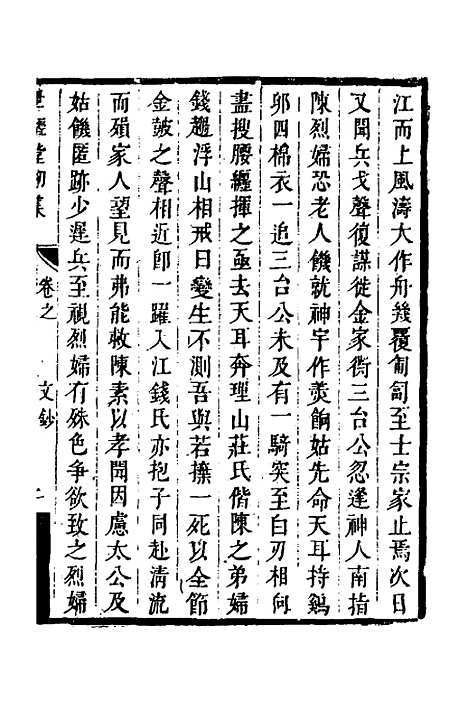 江而上風濤大作舟幾覆匍匐至士宗家止焉次日
又聞兵戈聲復謀徙金家衖三台公忽逢神人南指
陳烈婦恐老人饑就神宇作羮餉姑先命天耳持鷄
卵四棉衣一追三台公未及有一騎突至白刃相向
盡搜腰纏揮之亟去天耳奔理山莊氏偕陳之弟婦
錢趨浮山相戒曰變生不測吾與若擽一死以全節
金皷之聲相近卽一躍入江錢氏亦抱子同赴淸流
而殞家人望見而弗能救陳素以孝聞因慮太公及
姑饑匿跡少遲兵至視烈婦有殊色爭欲致之烈婦
堂初集
卷之
文鈔